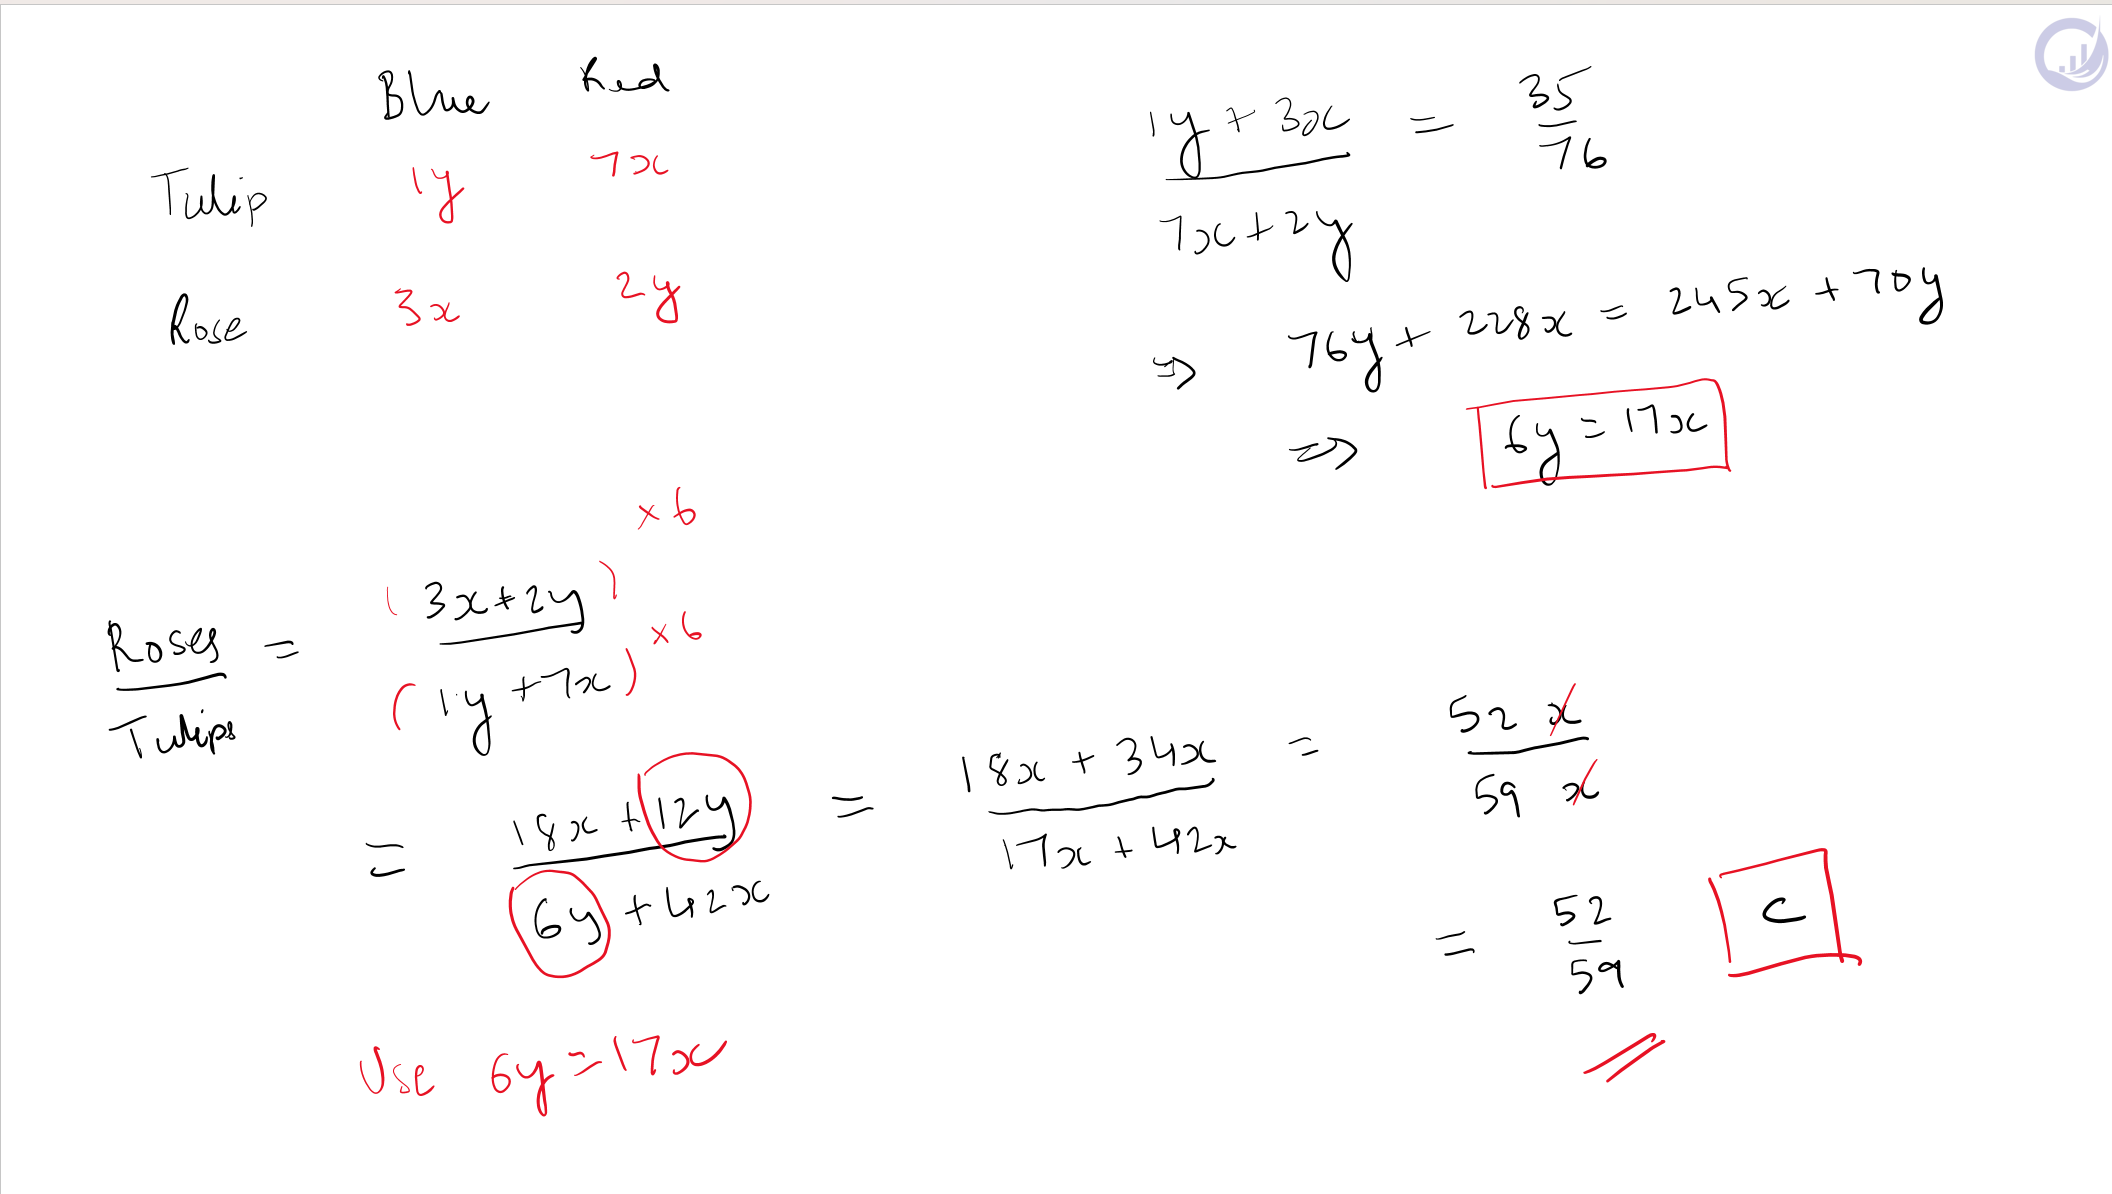 Blue Red
Tulip 1y 7x
Rose 3x 2y
1y + 3x / 7x + 2y = 35/76
⇒ 76y + 228x = 245x + 70y
⇒ 6y = 17x
Roses / Tulips = (3x + 2y) × 6 / (1y + 7x) × 6
= 18x + 12y / 6y + 42x = 18x + 34x / 17x + 42x = 52x / 59x
= 52/59 C
Use 6y = 17x